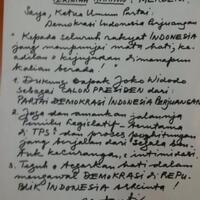 Saya, Ketua Umum Partai
Demokrasi Indonesia Perjuangan
"Kepada seluruh rakyat INDONESIA
yang mempunyai mata hati, ke-
adilan & kejujuran dimanapun
kalian berada"
1. Dukung Bapak Joko Widodo
sebagai CALON PRESIDEN dari:
PARTAI DEMOKRASI INDONESIA PERJUANGAN
2. Jaga dan amankan jalannya
Pemilu Legislatif terutama
di TPS² dan proses penghitungan
yang berjalan dari segala ben-
tuk kecurangan, & intimidasi.
3. Teguh & tegarkan hati dalam
mengawal DEMOKRASI di REPU-
BLIK INDONESIA tercinta!